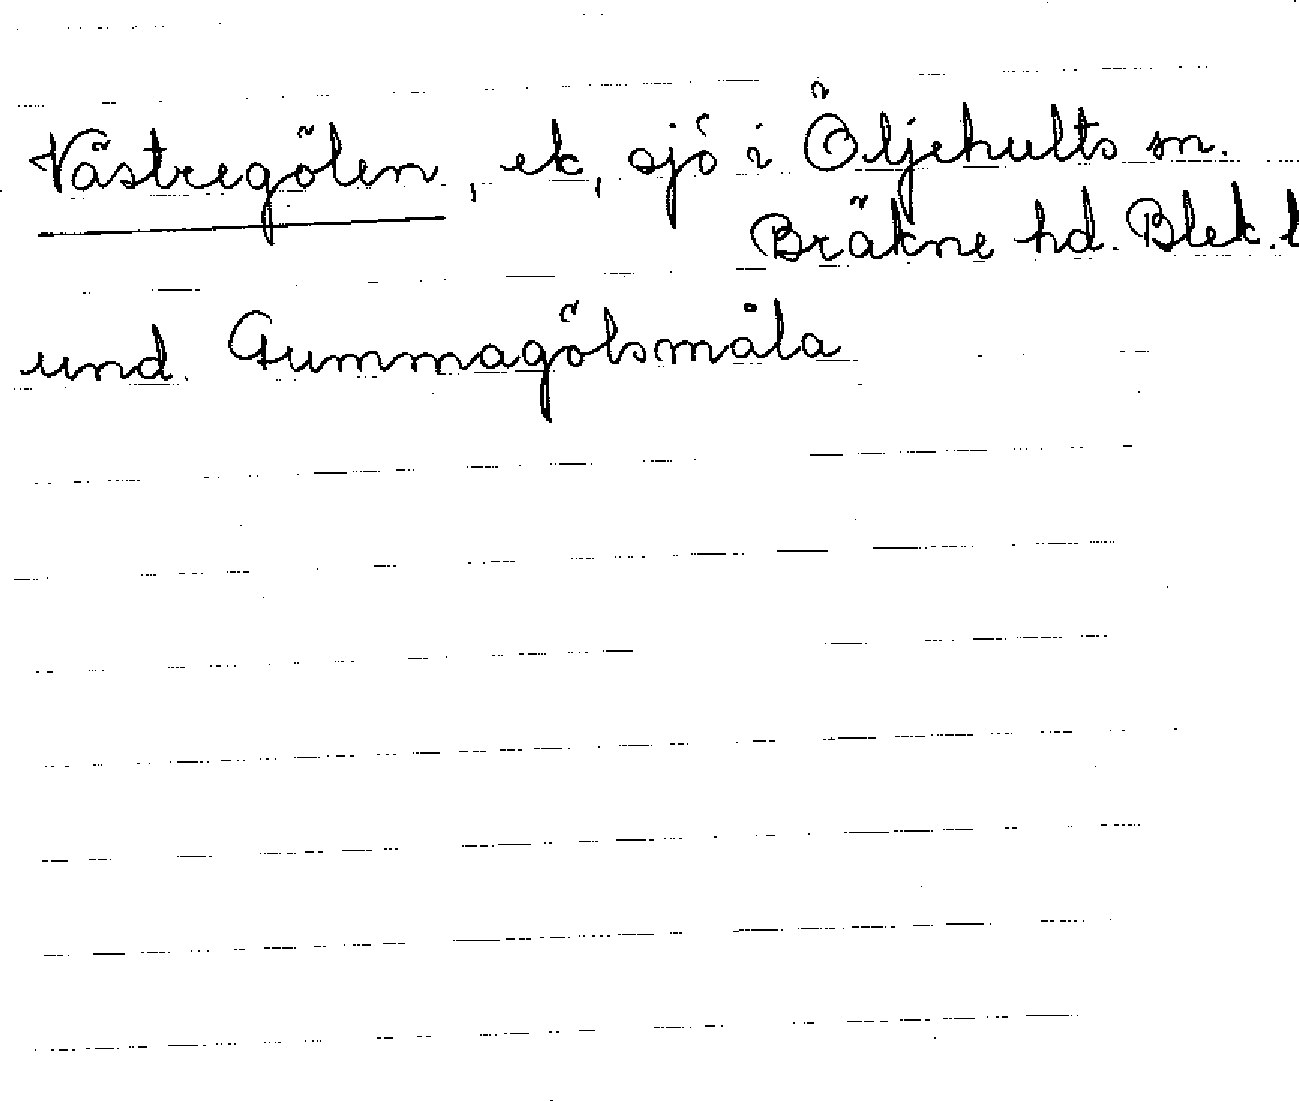 Västregölen, ek, sjö i Öljehults sn.
Bräkne hd. Blek. l
und. Gummagölsmåla